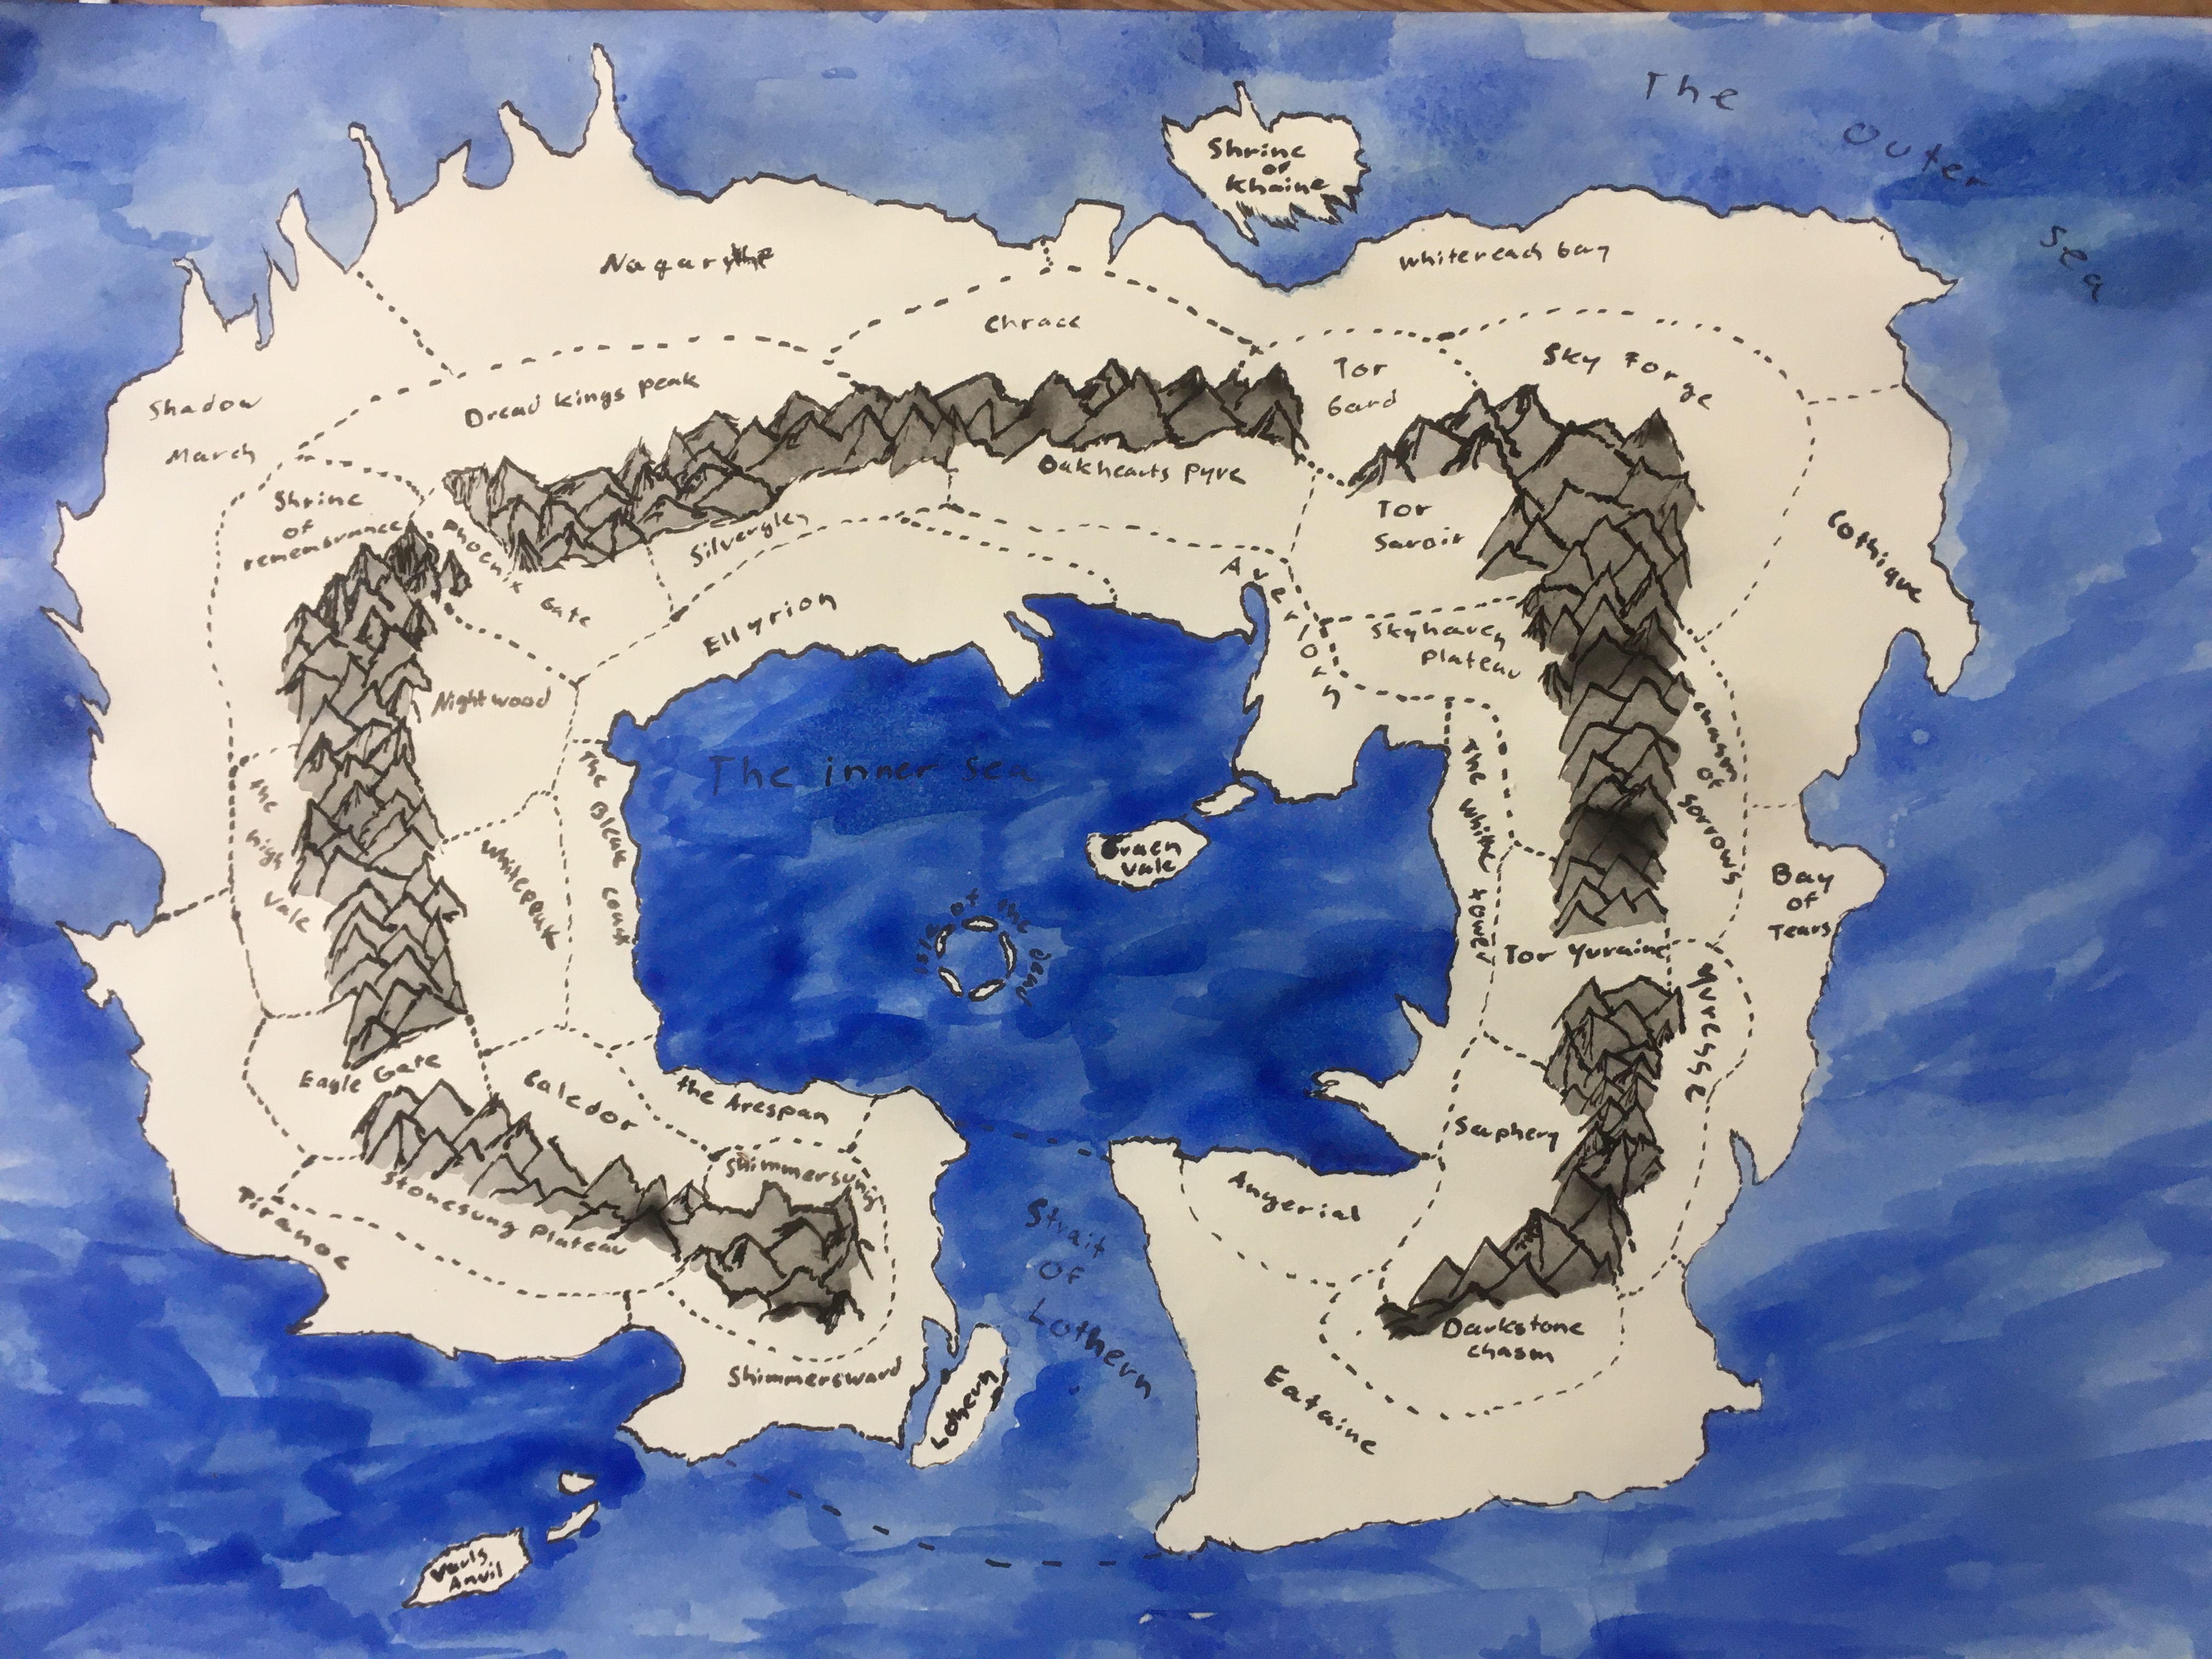 The Outer Sea
Shrine
of
Khaine
Nagarythe
Whitereach bay
Chrace
Sky Forge
Tor
Gard
Dread Kings peak
Shadow
March
Oakhearts Pyre
Shrine
of
remembrance
Phoenix Gate
Silverglen
Tor
Saroir
Cothique
Avernlorn
Ellyrion
Skyhaven
Plateau
Nightwood
The inner Sea
The Bleak coast
The White tower
chasm
of
Sorrows
the
high
Vale
Whitepeak
Graen
Vale
Bay
of
Tears
isle of the dead
Tor Yvraine
Yvresse
Eagle Gate
Caledor
the Arespan
Saphery
Shimmersung
Stonesung Plateau
Tiranoc
Angerial
Strait
Of
Lothern
Darkstone
chasm
Shimmersward
Lothern
Eataine
Vauls
Anvil